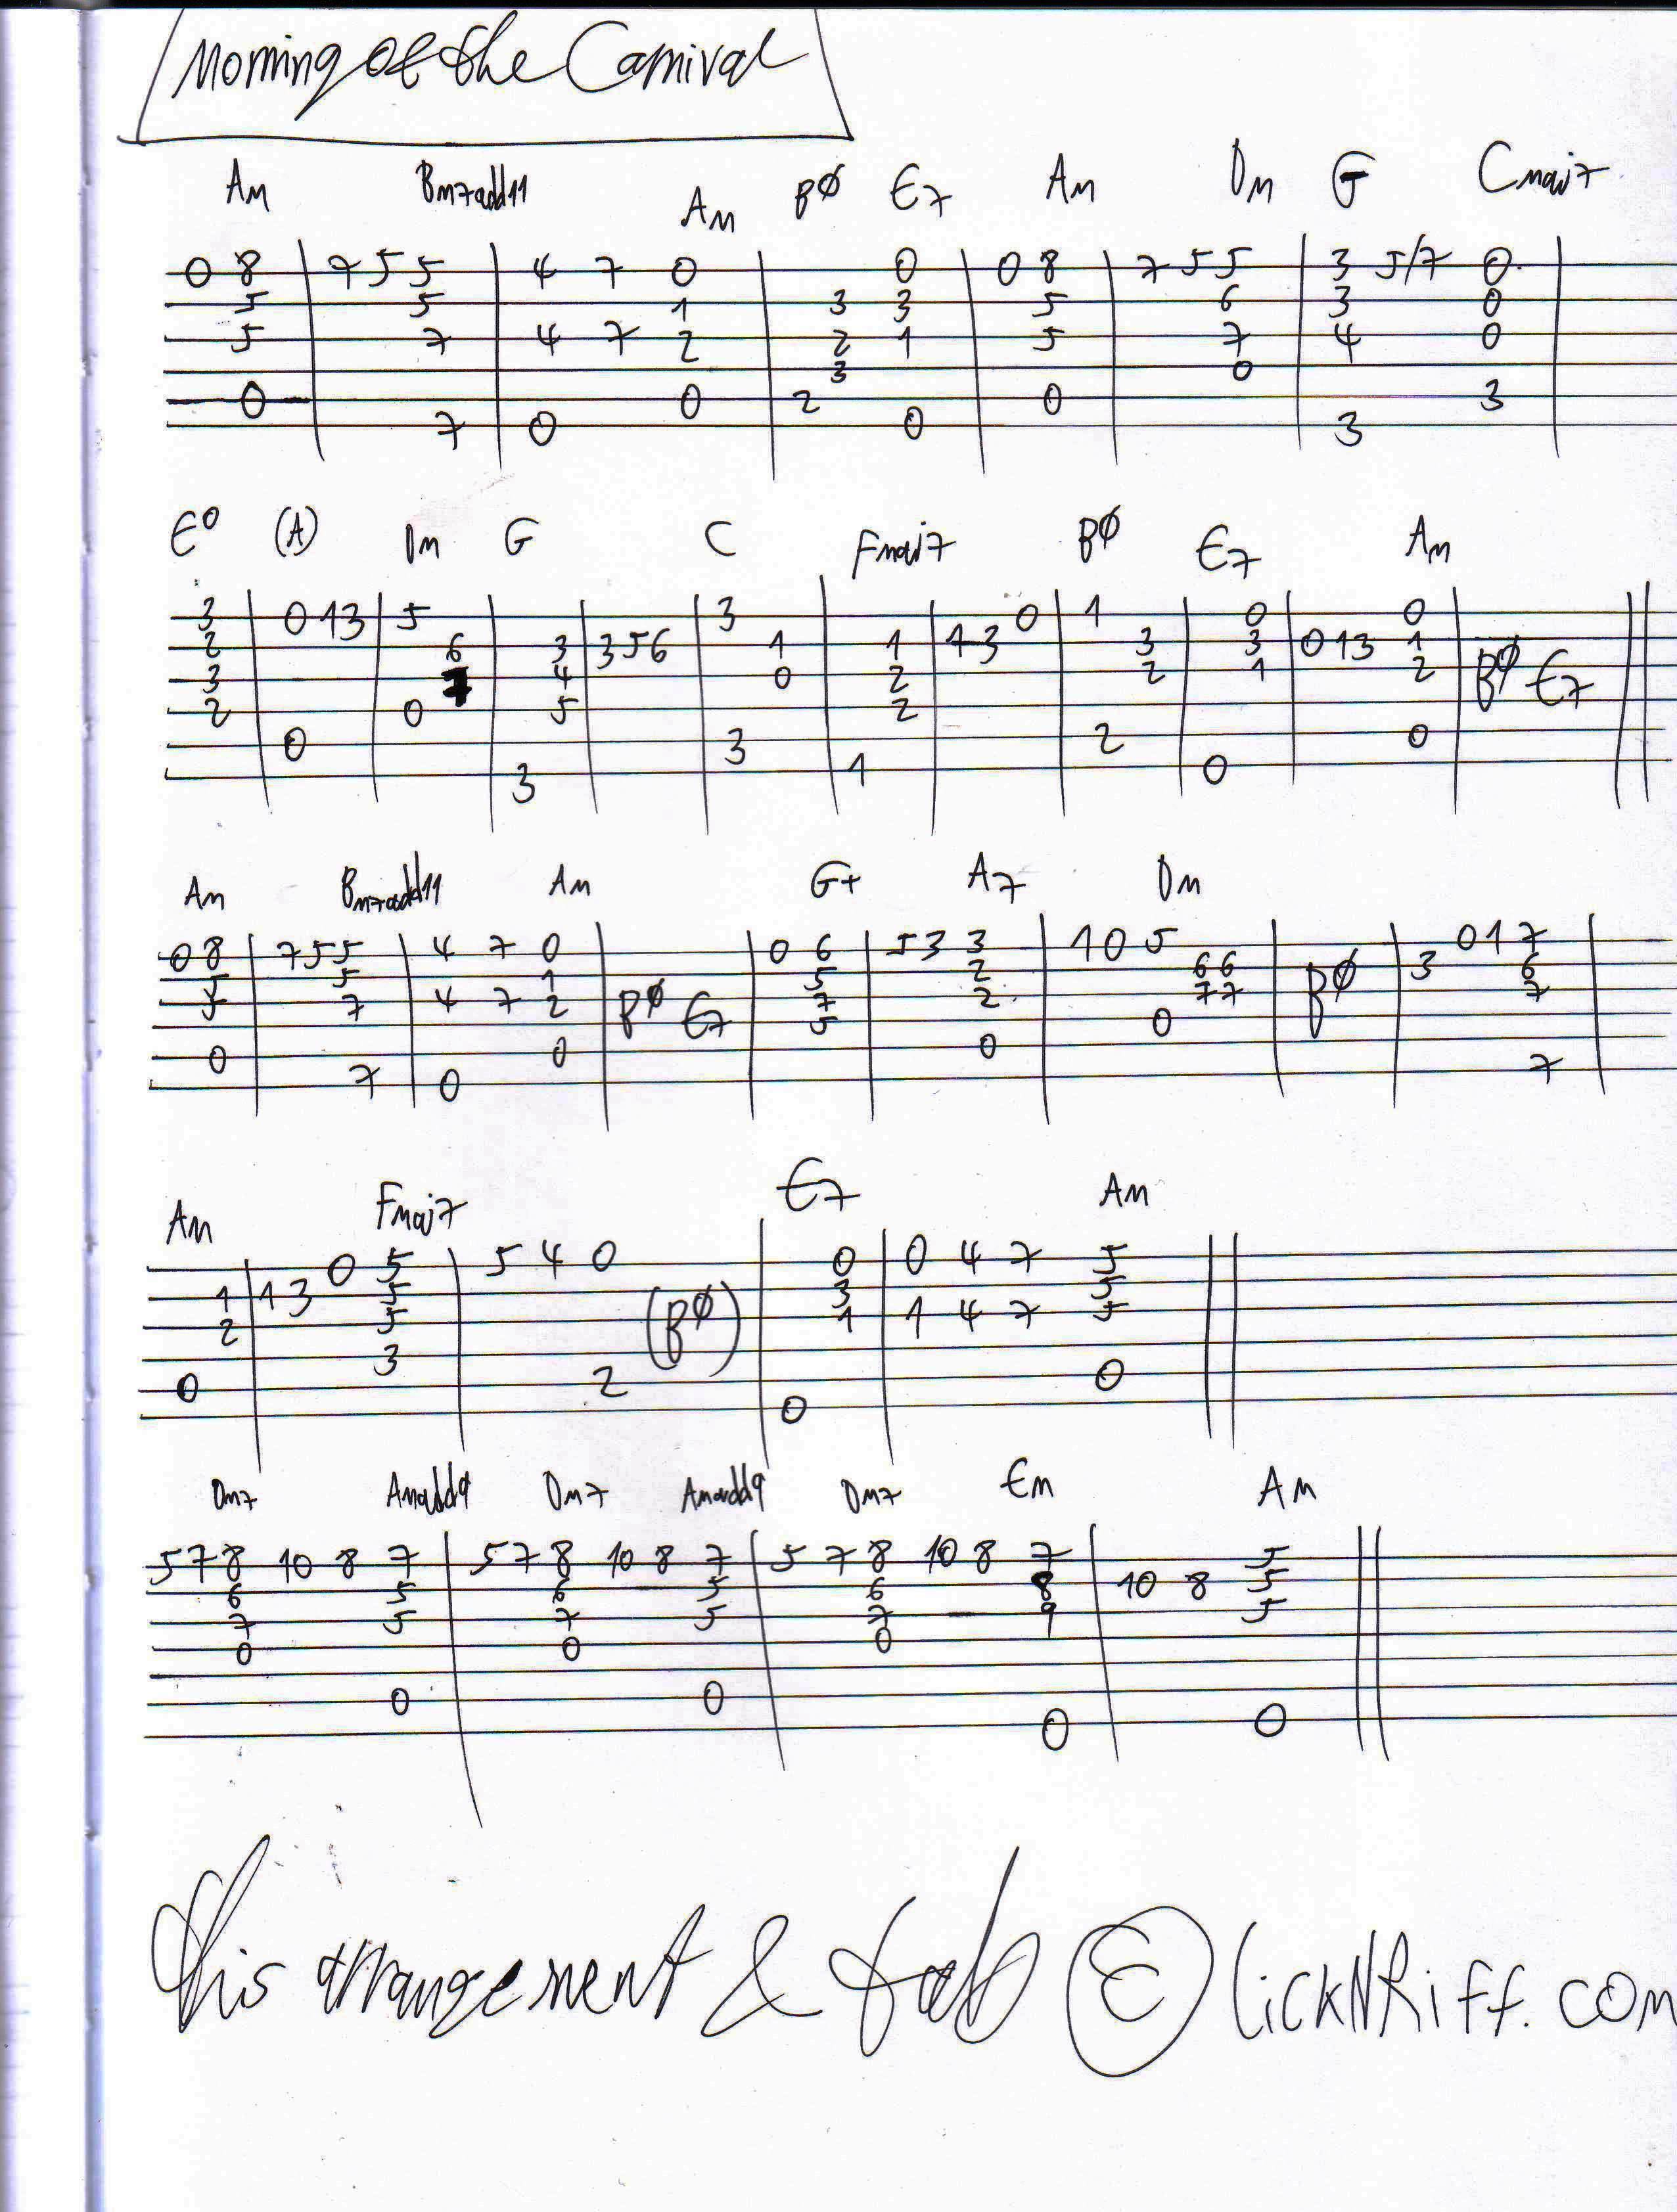 Morning of the Carnival
Am Bm7add11 Am BØ E7 Am Dm G Cmaj7
0 8 7 5 5 4 7 0 0 0 8 7 5 5 3 5/7 0
5 5 1 3 3 5 6 3 0
5 7 4 7 2 2 1 5 7 4 0
3 0
0 0 2 0 3
7 0 0 3
E° (A) Dm G C Fmaj7 BØ E7 Am
3 0 1 3 5 3 0 1 0 0
2 6 3 3 5 6 1 1 1 3 3 3 0 1 3 1
3 7 4 0 2 2 1 2 BØ E7
2 0 5 2
0 3 2 0
3 1 0
Am Bm7add11 Am G+ A7 Dm
0 8 7 5 5 4 7 0 0 6 5 3 3 1 0 5 0 1 7
5 5 1 5 2 6 6 3 6
5 7 4 7 2 BØ E7 7 2 7 7 BØ 7
5 0
0 0 0
7 0 7
Am Fmaj7 E7 Am
0 5 5 4 0 0 0 4 7 5
1 1 3 5 3 5
2 5 1 1 4 7 5
3 (BØ)
0 2 0
0
Dm7 Amadd9 Dm7 Amadd9 Dm7 Em Am
5 7 8 10 8 7 5 7 8 10 8 7 5 7 8 10 8 7 5
6 5 6 5 6 8 10 8 5
7 5 7 5 7 9 5
0 0 0
0 0
0 0
this arrangement & tab © lickNRiff.com